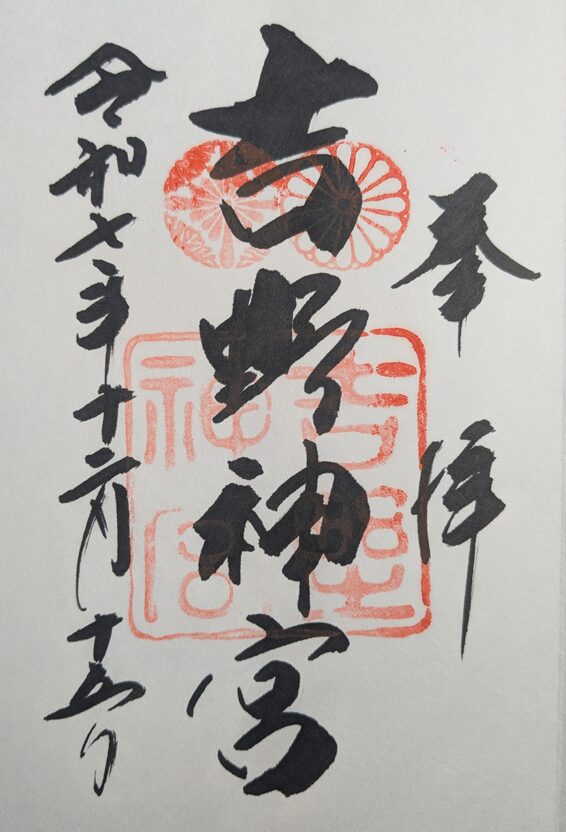 奉拝
吉野神宮
令和七年十二月十五日
吉野
神宮